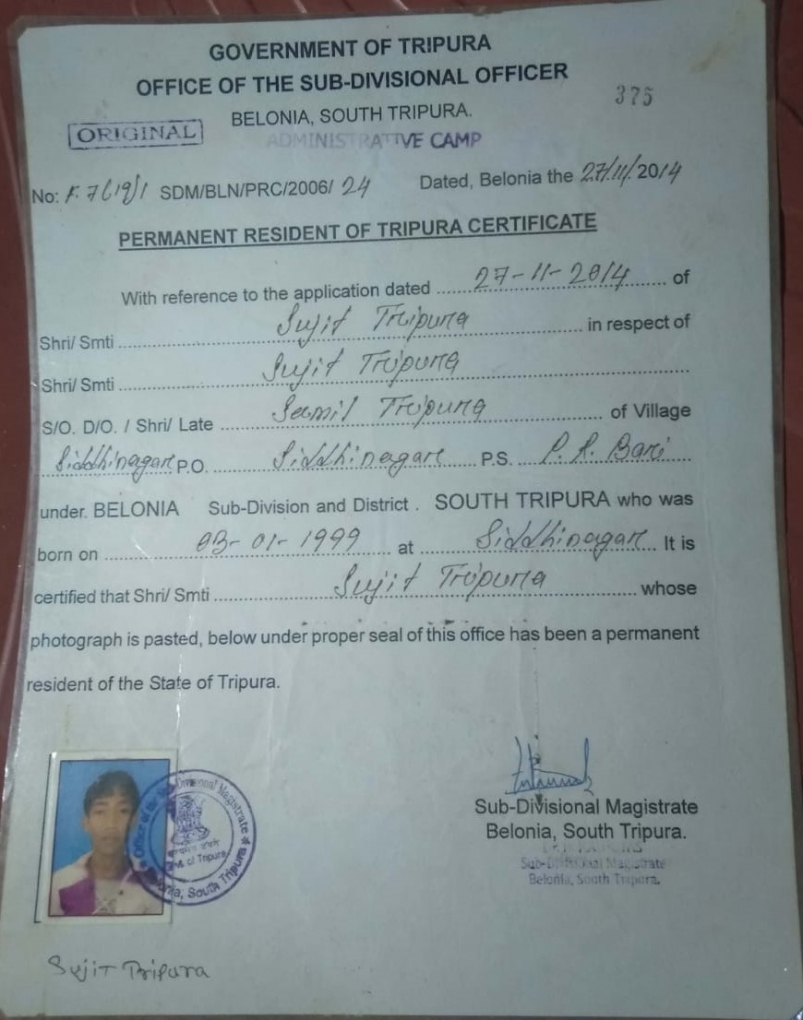 GOVERNMENT OF TRIPURA
OFFICE OF THE SUB-DIVISIONAL OFFICER
375
BELONIA, SOUTH TRIPURA.
ORIGINAL
ADMINISTRATIVE CAMP
No: F. 7(19)/1 SDM/BLN/PRC/2006/ 24 Dated, Belonia the 27/11/2014
PERMANENT RESIDENT OF TRIPURA CERTIFICATE
With reference to the application dated 27-11-2014 of
Shri/ Smti Sujit Tripura in respect of
Shri/ Smti Sujit Tripura
S/O. D/O. / Shri/ Late Samil Tripura of Village
Siddhinagar P.O. Siddhinagar P.S. P. R. Bari
under. BELONIA Sub-Division and District . SOUTH TRIPURA who was
born on 03-01-1999 at Siddhinagar It is
certified that Shri/ Smti Sujit Tripura whose
photograph is pasted, below under proper seal of this office has been a permanent
resident of the State of Tripura.
Sub-Divisional Magistrate
Belonia, South Tripura.
Sub-Divisional Magistrate
Belonia, South Tripura.
Office of the Sub-Divisional Magistrate
Govt. of Tripura
Belonia, South Tripura
Sujit Tripura